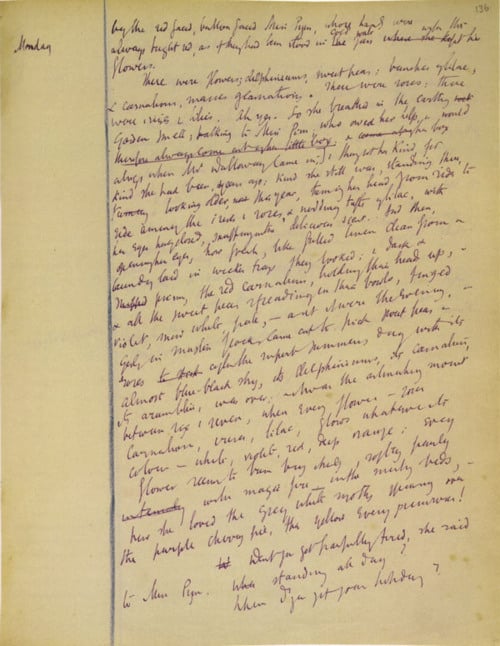 136
Monday
by the red faced, button faced Miss Pym, whose hands were
always bright red, as if they had been stood in cold water with the
flowers.
There were flowers; delphiniums, sweet peas; bunches of lilac,
& carnations, masses of carnations. There were roses; there
were irises & lilacs. Ah yes. So she breathed in the earthy
garden smell, talking to Miss Pym, who owed her help, &
always when Mrs Dalloway came in; & thought her kind, for
kind she had been, years ago; kind she still was, standing there,
looking older, this year, turning her head from side to
side among the irises & roses, & nodding tufts of lilac, with
her eyes half closed, snuffing in the delicious scent. And then,
opening her eyes, how fresh, like frilled linen clean from a
laundry laid in wicker trays they looked; & dark &
prim, the red carnations, holding their heads up,
& all the sweet peas spreading in their bowls, tinged
violet, snow white, pale, – as if it were the evening, &
girls in muslin frocks came out to pick sweet peas &
roses after the superb summers day with its
almost blue-black sky, its delphiniums, its carnations,
its arum lilies, was over; & it was the moment
between six & seven, when every flower – roses
carnations, irises, lilac, glows whatever its
colour – white, violet, red, deep orange; every
flower seems to burn by itself, softly, purely
in the misty beds,
how she loved the grey white moths spinning over
the purple cherry pie, the yellow evening primroses!
Don't you get frightfully tired, she said
to Miss Pym. standing all day?
When d'you get your holiday?